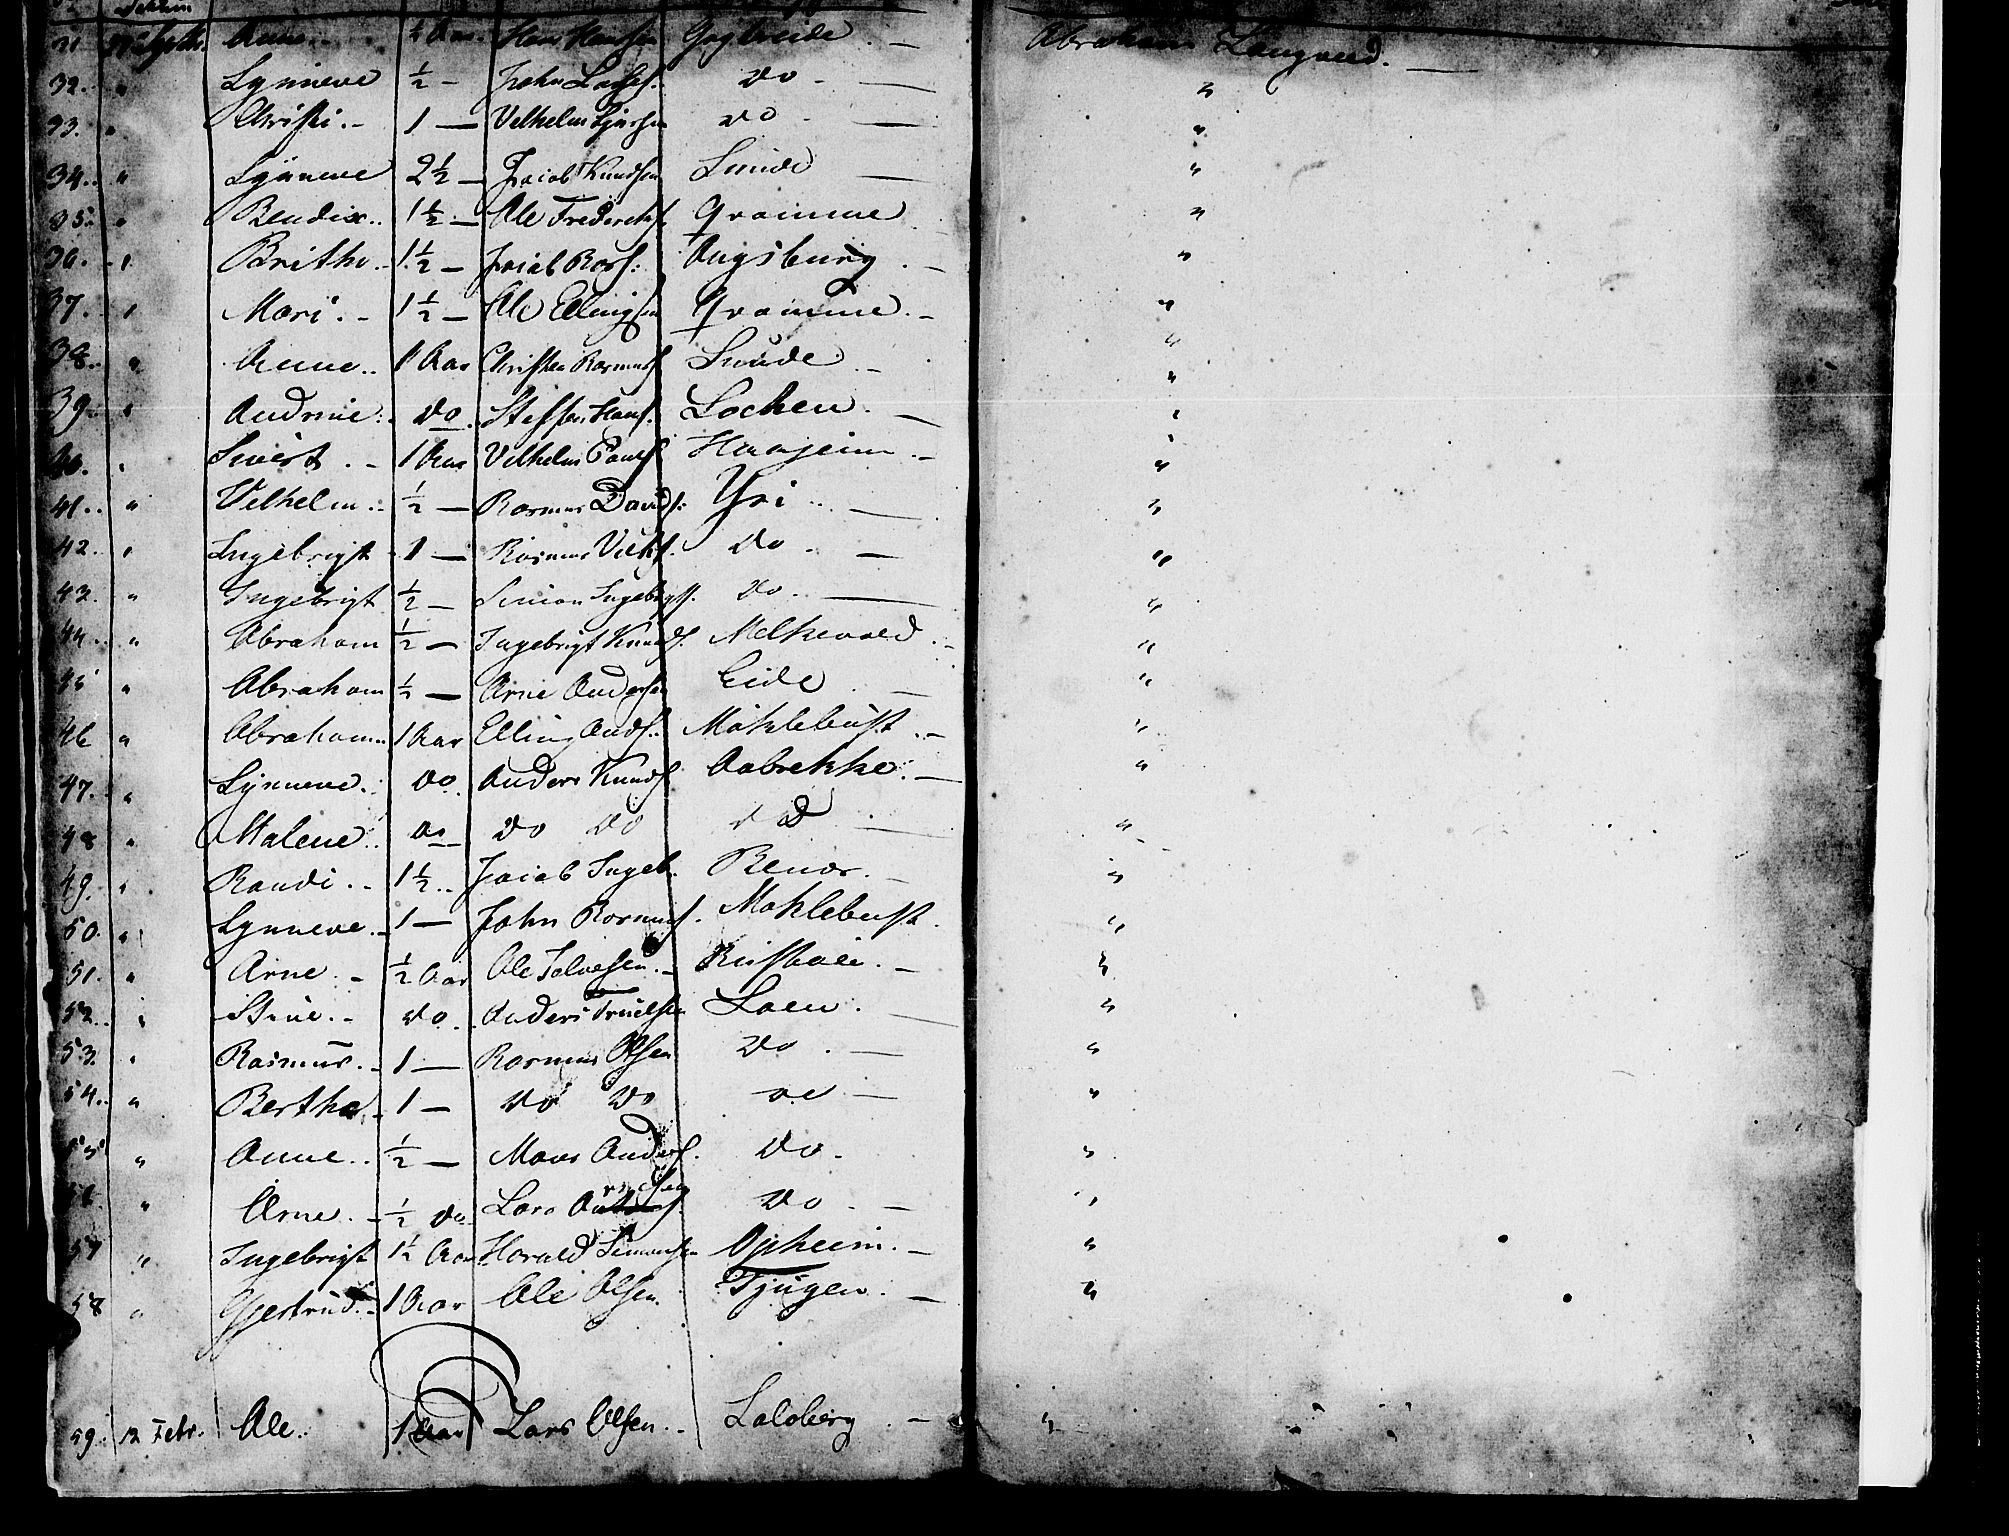 31 Septbr. Anne ½ Aar. Hans Hansen — Abraham Langved.
32. " Synneve ½ — John Lasses. do — "
33. " Christi. 1 — Vilhelm do — "
34. " Synneve 2½ — Jacob Knudsen Sunde — "
35. " Bendix. 1½ — Ole Frederiks. Qvamme "
36. " Brithe 1½ — Jacob Ras: Augsburg — "
37. " Mari. 1½ — Ole Ellingsen Qvamme. — "
38. " Anne. 1 Aar Christen Rasmuss Sunde. — "
39. " Andrine. do. Steffen Hans. Lochen. — "
40. " Sivert. 1 Aar Vilhelm Pauls Haajeim — "
41. " Vilhelm. ½ — Rasmus Davids: Yri — "
42. " Ingebrigt 1 — Rasmus Vilh. do. — "
43. " Ingebrigt ½ — Simon Ingebrigts. do. — "
44. " Abraham ½ — Ingebrigt Knuds. Melkevold. — "
45 " Abraham ½ — Arne Andersen Eide — "
46 " Abraham 1 Aar Elling Ands. MØhlebust. — "
47. " Synneve. do. Anders Knuds. Aabrekke. — "
48 " Malene. do do do do — "
49. " Randi. 1½ Jacob Ingeb. — "
50. " Synneve. 1 — John Rasmuss. Mohlebust. "
51. " Arne. ½ Aar Ole Salvesen. — "
52. " Stine. do. Anders Truelsen Loen. — "
53. " Rasmus. 1 — Rasmus Olsen do. — "
54. " Berthe. 1 — do do do — "
55 " Anne. ½ — Mons Anders. do. "
56. " Arne. ½ do. Lars do. — "
57 " Ingebrigt 1½ Aar Harald Simonsen Opheim. — "
58 " Gjertrud. 1 Aar Ole Olsen. Tjugen. — "
59. 12 Febr. Ole. 1 Aar Lars Olsen. — "